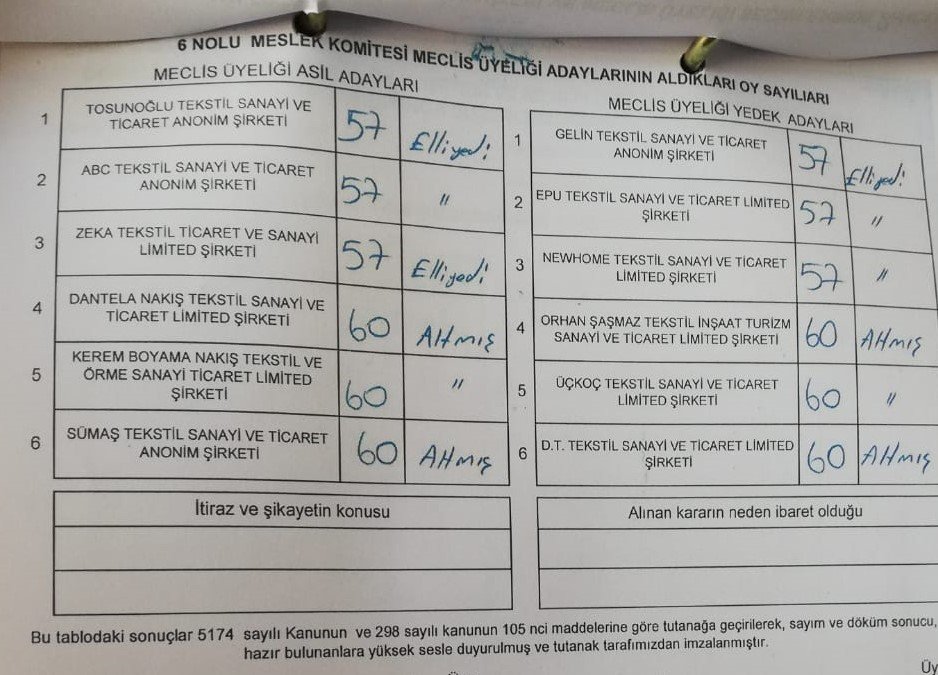 6 NOLU MESLEK KOMİTESİ MECLİS ÜYELİĞİ ADAYLARININ ALDIKLARI OY SAYILIARI
MECLİS ÜYELİĞİ ASİL ADAYLARI
1 TOSUNOĞLU TEKSTİL SANAYİ VE
TİCARET ANONİM ŞİRKETİ 57 Elliyedi
2 ABC TEKSTİL SANAYİ VE TİCARET
ANONİM ŞİRKETİ 57 "
3 ZEKA TEKSTİL TİCARET VE SANAYİ
LİMİTED ŞİRKETİ 57 Elliyedi
4 DANTELA NAKIŞ TEKSTİL SANAYİ VE
TİCARET LİMİTED ŞİRKETİ 60 Altmış
5 KEREM BOYAMA NAKIŞ TEKSTİL VE
ÖRME SANAYİ TİCARET LİMİTED
ŞİRKETİ 60 "
6 SÜMAŞ TEKSTİL SANAYİ VE TİCARET
ANONİM ŞİRKETİ 60 Altmış
MECLİS ÜYELİĞİ YEDEK ADAYLARI
1 GELİN TEKSTİL SANAYİ VE TİCARET
ANONİM ŞİRKETİ 57 Elliyedi
2 EPU TEKSTİL SANAYİ VE TİCARET LİMİTED
ŞİRKETİ 57 "
3 NEWHOME TEKSTİL SANAYİ VE TİCARET
LİMİTED ŞİRKETİ 57 "
4 ORHAN ŞAŞMAZ TEKSTİL İNŞAAT TURİZM
SANAYİ VE TİCARET LİMİTED ŞİRKETİ 60 Altmış
5 ÜÇKOÇ TEKSTİL SANAYİ VE TİCARET
LİMİTED ŞİRKETİ 60 "
6 D.T. TEKSTİL SANAYİ VE TİCARET LİMİTED
ŞİRKETİ 60 Altmış
İtiraz ve şikayetin konusu
Alınan kararın neden ibaret olduğu
Bu tablodaki sonuçlar 5174 sayılı Kanunun ve 298 sayılı kanunun 105 nci maddelerine göre tutanağa geçirilerek, sayım ve döküm sonucu,
hazır bulunanlara yüksek sesle duyurulmuş ve tutanak tarafımızdan imzalanmıştır.